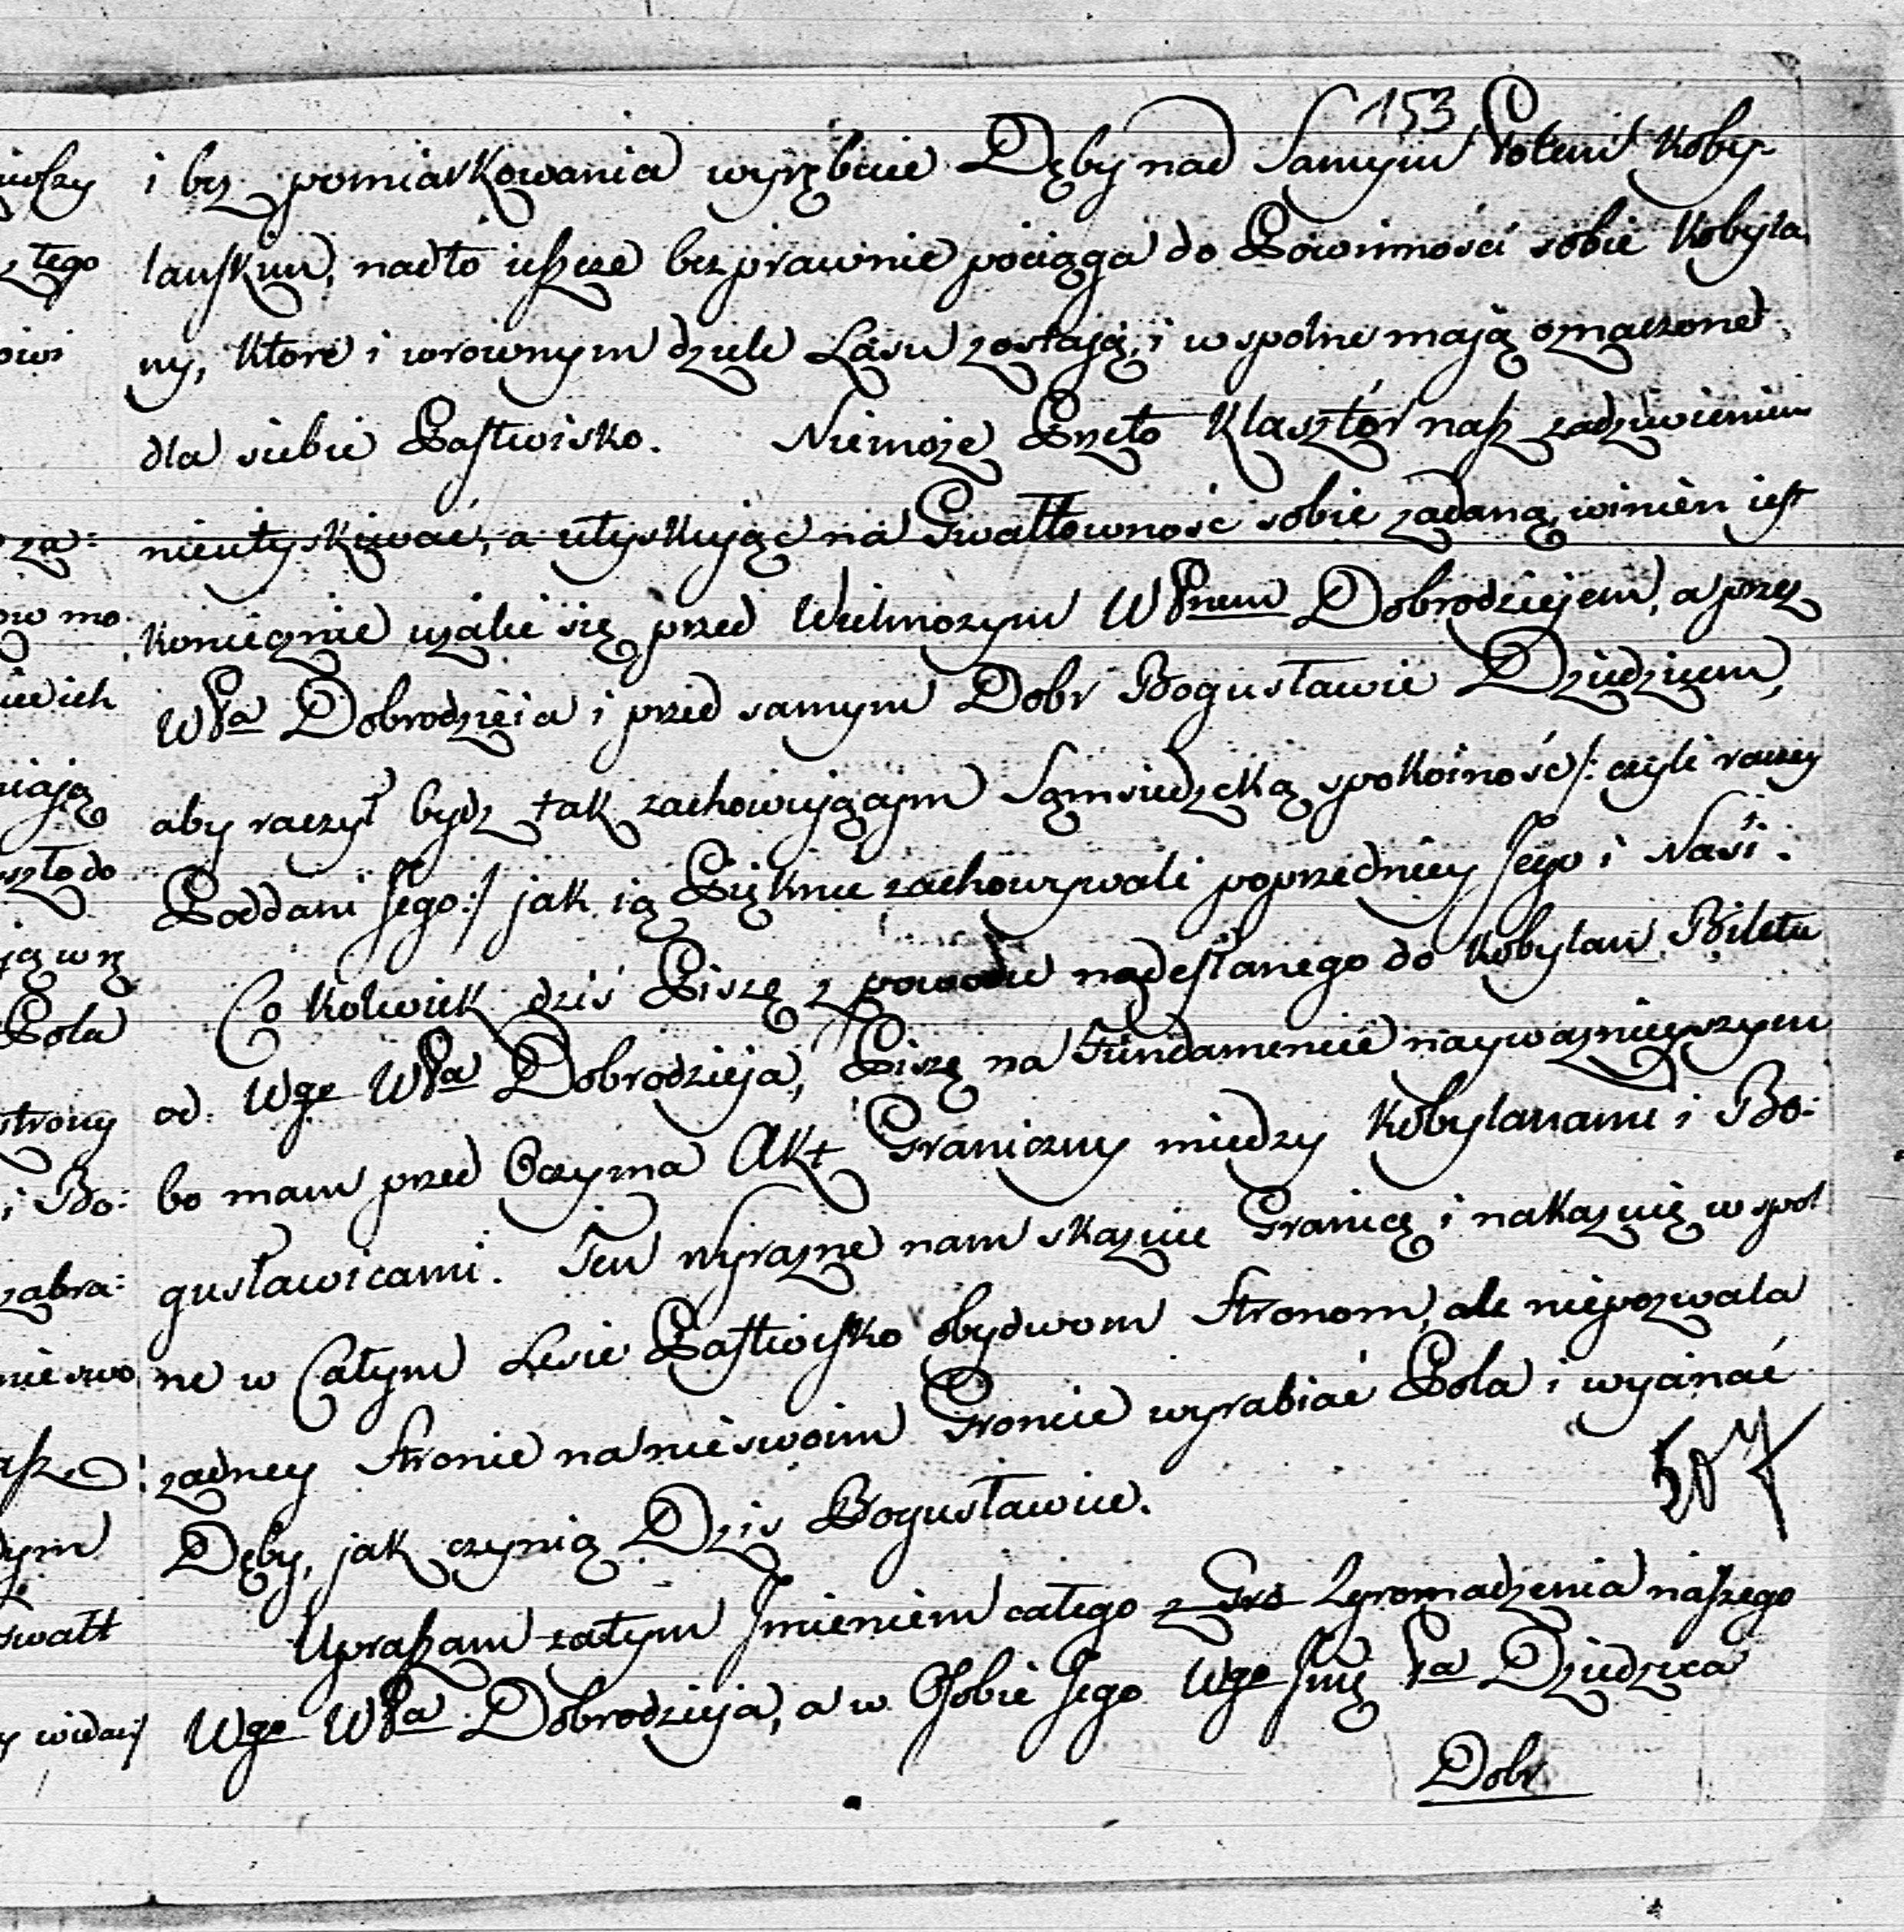 153
i bez pomiarkowania wyrębuie Dęby nad Samym Polem Koby-
lanskim, nadto ieszcze bezprawnie pociąga do Powinności sobie Kobyla
ny, które i wrownym dziele Lasu zostają, i wspolne mają oznaczone
dla siebie Pastwisko. Niemoże Przeto Klasztór nasz zadziwieniem
nieutyskiwać, a utyskując na Gwałtowność sobie zadaną, winien iest
koniecznie użalić się przed Wielmożnym WPnem Dobrodziejem, a przez
WPa Dobrodzieia i przed samym Dobr Bogusławic Dziedzicem,
aby raczył bydz tak zachowującym Sąmsiedzcką spokoiność /: czyli raczey
Poddani Jego :/ jak ią Pięknie zachowywali poprzedniey Jego i Nasi.
Co kolwiek dziś Piszę z powodu nadesłanego do Kobylan Biletu
od Wgo WPa Dobrodzieja, Piszę na Fundamencie naywaznieyszym
bo mam przed Oczyma Akt Graniczny miedzy Kobylanami i Bo:
gusławicami. Ten Wyrazne nam skazuie Granicę i nakazuię wspol
ne w Całym Lesie Pastwisko obydwom Stronom, ale niepozwala
zadney Stronie na nieswoim Groncie wyrabiać Pola i wycinać
Dęby, jak czynią Dzis Bogusławice.
507
Upraszam zatym Jmieniem całego z Gro Zgromadzenia naszego
Wgo WPa Dobrodzieja, a w Osobie Jego Wgo Jmę Pa Dziedzica
Dobr